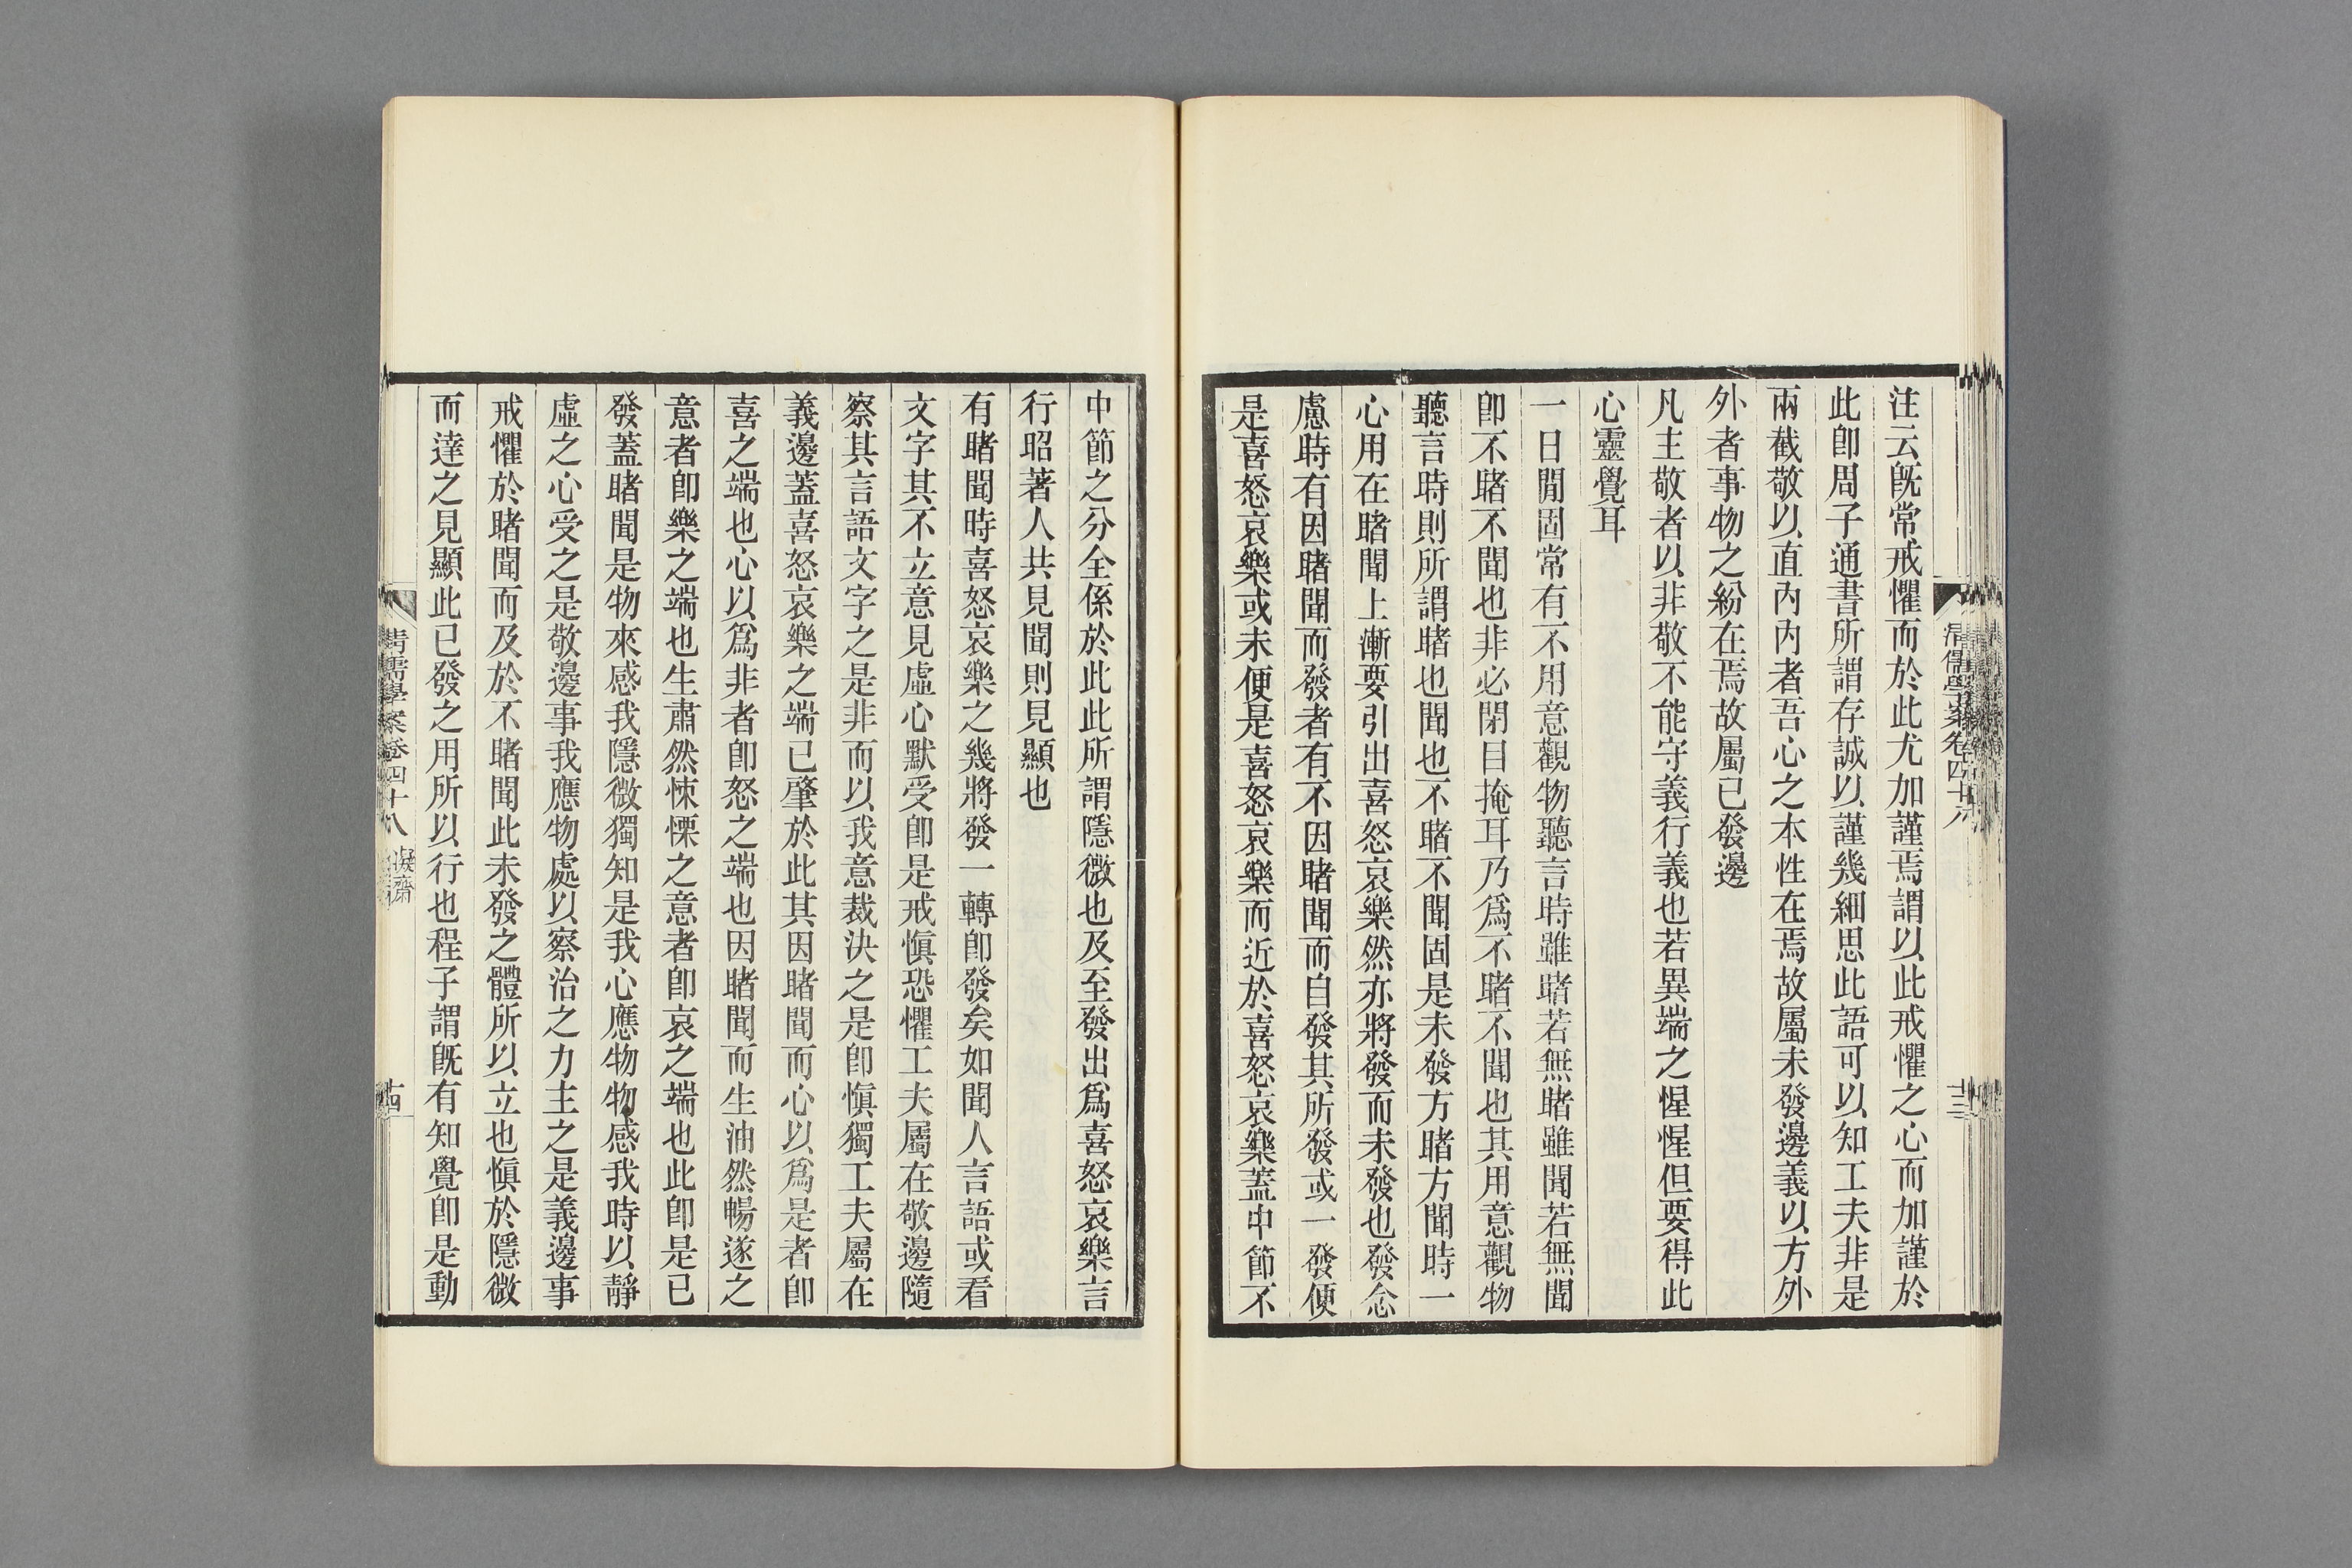 注云旣常戒懼而於此尤加謹焉謂以此戒懼之心而加謹於
此卽周子通書所謂存誠以謹幾細思此語可以知工夫非是
兩截敬以直內內者吾心之本性在焉故屬未發邊義以方外
外者事物之紛在焉故屬已發邊
凡主敬者以非敬不能守義行義也若異端之惺惺但要得此
心靈覺耳
一日閒固常有不用意觀物聽言時雖睹若無睹雖聞若無聞
卽不睹不聞也非必閉目掩耳乃爲不睹不聞也其用意觀物
聽言時則所謂睹也聞也不睹不聞固是未發方睹方聞時一
心用在睹聞上漸要引出喜怒哀樂然亦將發而未發也發念
慮時有因睹聞而發者有不因睹聞而自發其所發或一發便
是喜怒哀樂或未便是喜怒哀樂而近於喜怒哀樂蓋中節不
清儒學案卷四十八
十三
中節之分全係於此此所謂隱微也及至發出爲喜怒哀樂言
行昭著人共見聞則見顯也
有睹聞時喜怒哀樂之幾將發一轉卽發矣如聞人言語或看
文字其不立意見虛心默受卽是戒愼恐懼工夫屬在敬邊隨
察其言語文字之是非而以我意裁決之是卽愼獨工夫屬在
義邊蓋喜怒哀樂之端已肇於此其因睹聞而心以爲是者卽
喜之端也心以爲非者卽怒之端也因睹聞而生油然暢遂之
意者卽樂之端也生肅然悚慄之意者卽哀之端也此卽是已
發蓋睹聞是物來感我隱微獨知是我心應物物感我時以靜
虛之心受之是敬邊事我應物處以察治之力主之是義邊事
戒懼於睹聞而及於不睹聞此未發之體所以立也愼於隱微
而達之見顯此已發之用所以行也程子謂旣有知覺卽是動
清儒學案卷四十八 凝齋
十四